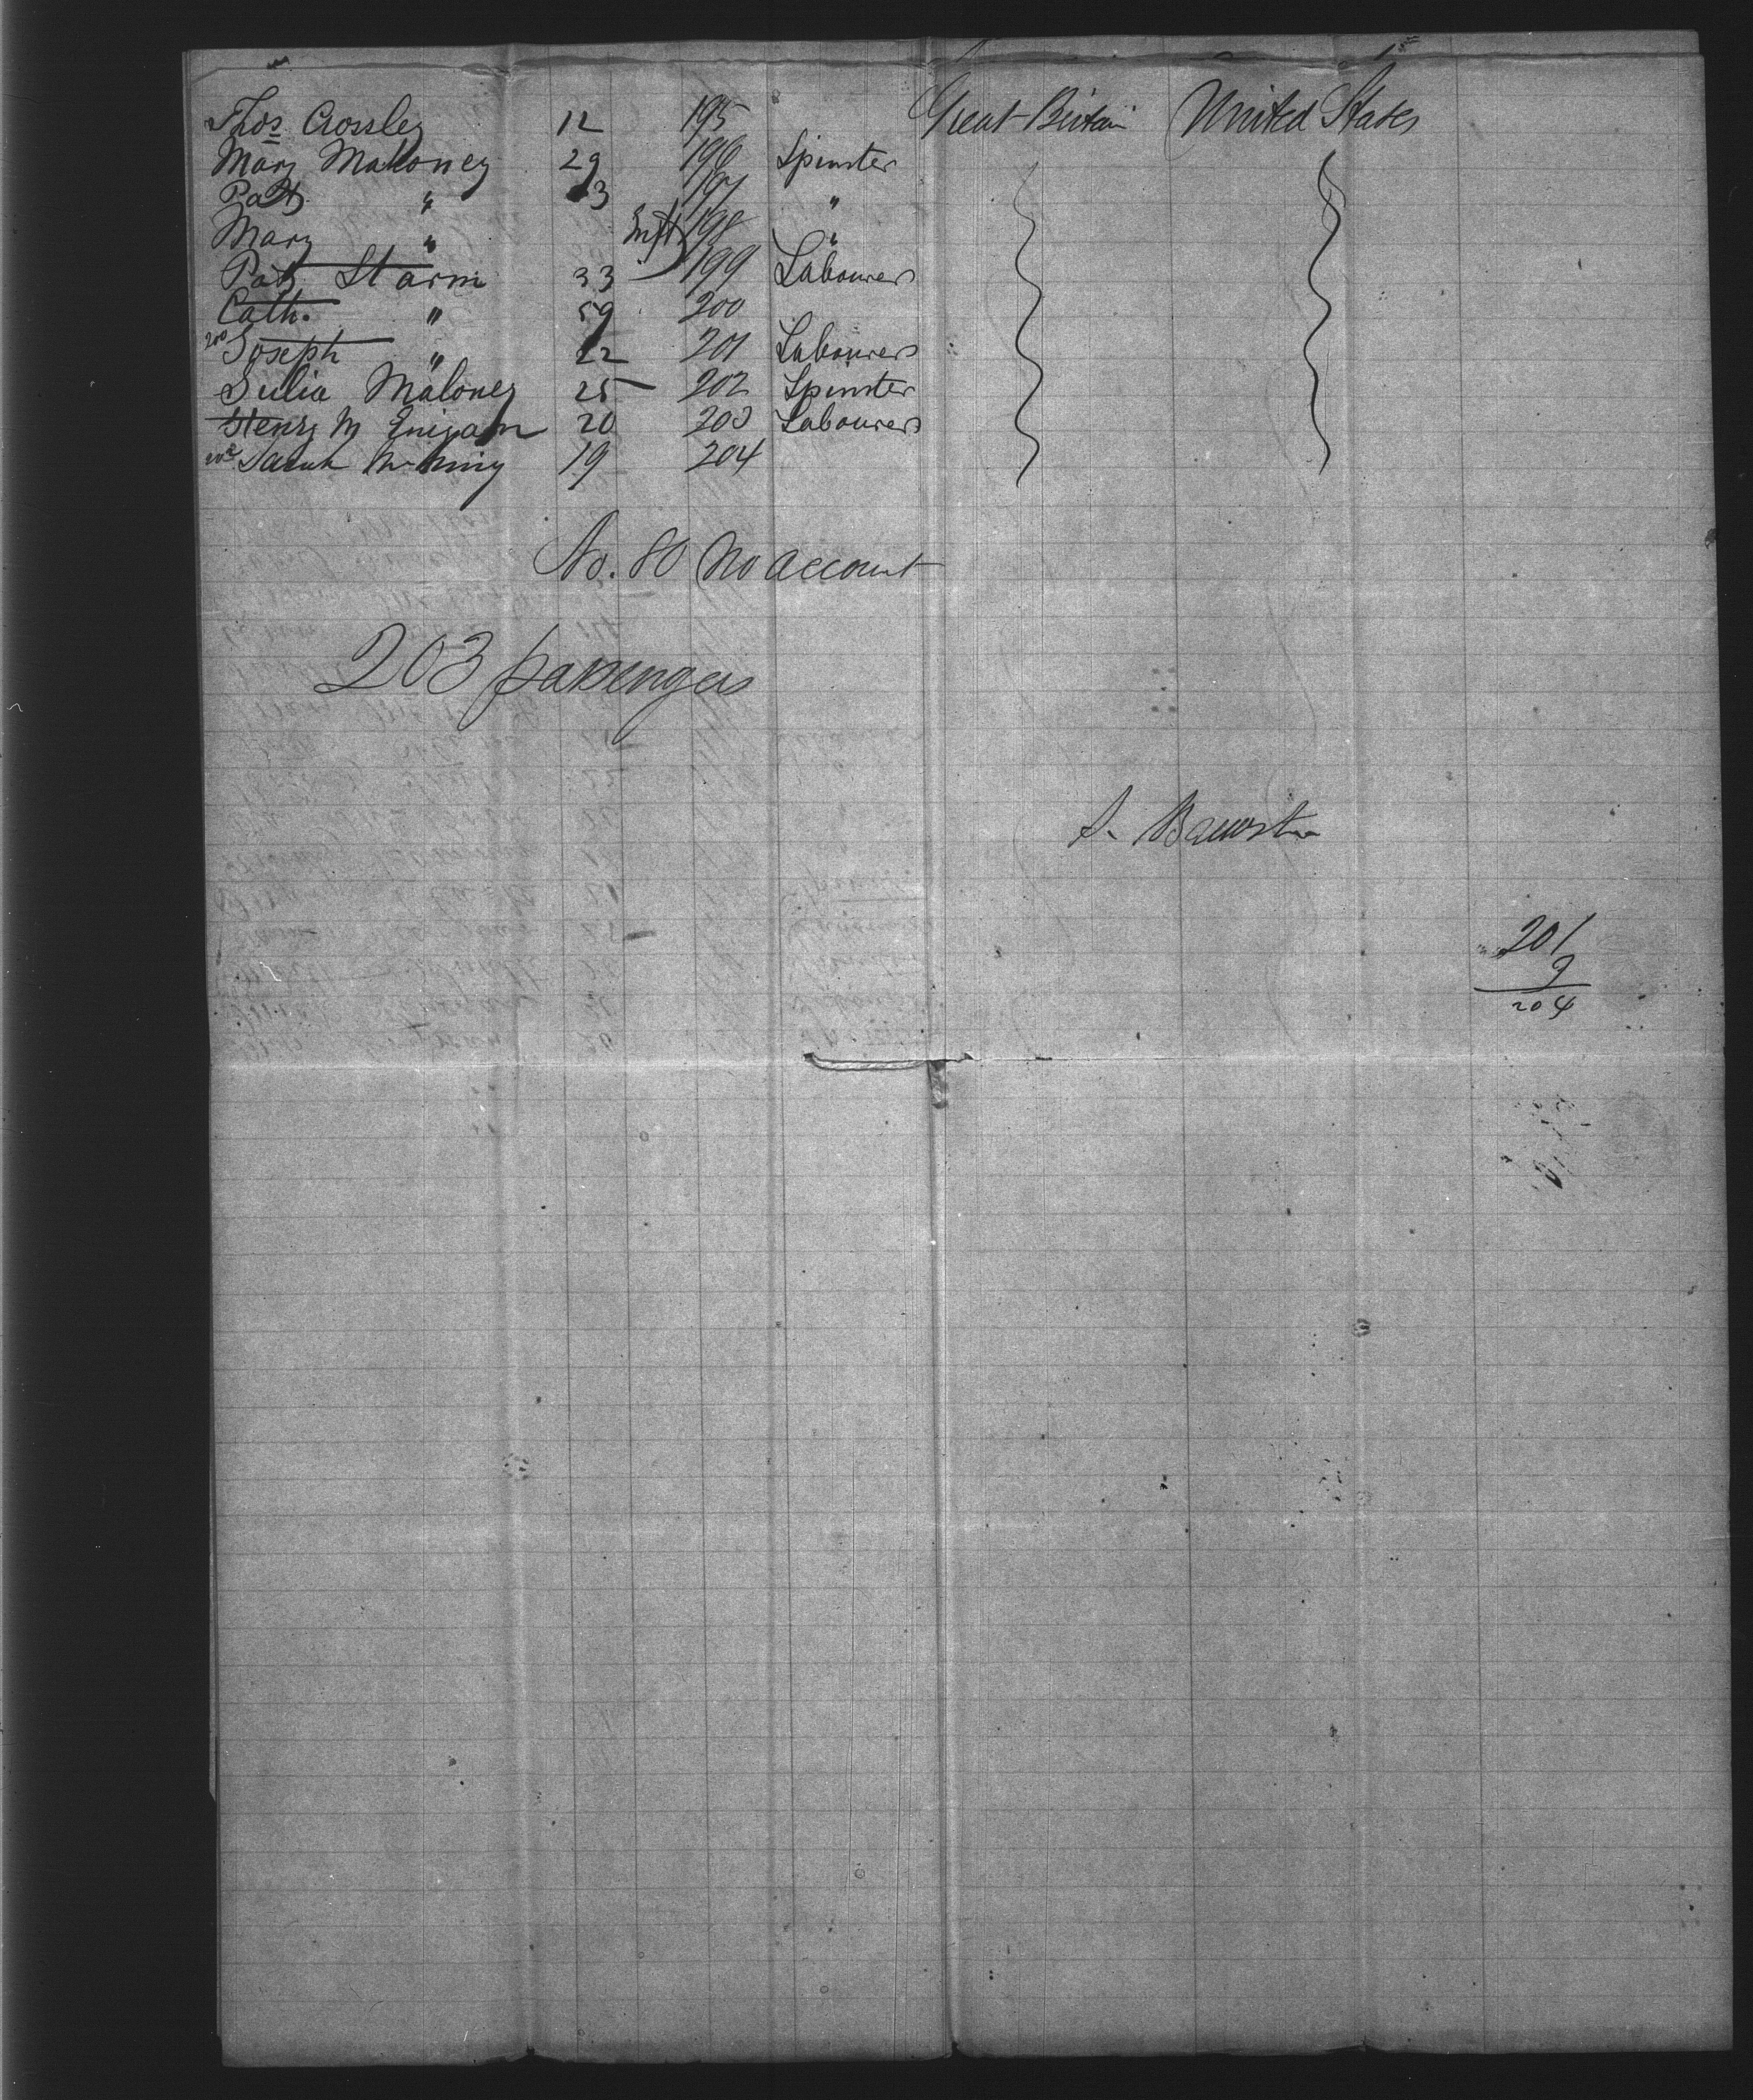 Thos Crossley 12 195 Great Britain United States
Mary Mahoney 29 196 Spinster
Pat " 23 197 "
Mary " Inft 198 "
Pat 33 199 Labourer
Cath. " 59 200
200 Joseph " 22 201 Labourer
Julia Maloney 25 202 Spinster
Henry 20 203 Labourer
Sarah 19 204
No. 80 No account
203 passengers
201
204